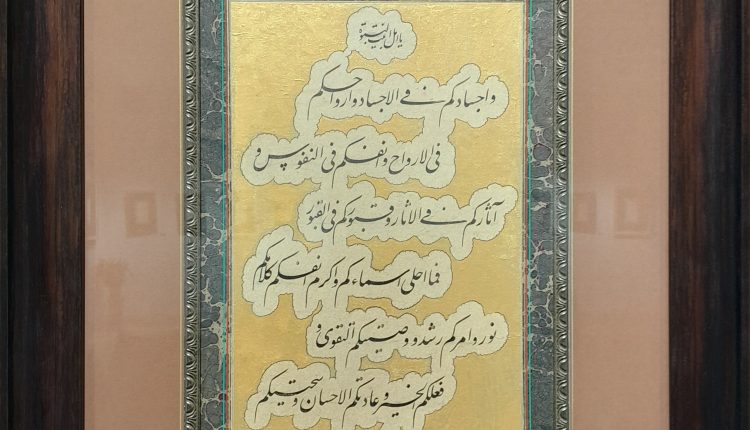 یا اهل بیت النبوة
و اجسادکم فی الاجساد و ارواحکم
فی الارواح و انفسکم فی النفوس و
آثارکم فی الاثار و قبورکم فی القبور
فما احلی اسماءکم و اکرم انفسکم کلامکم
نور و امرکم رشد و وصیتکم التقوی و
فعلکم الخیر و عادتکم الاحسان و سجیتکم